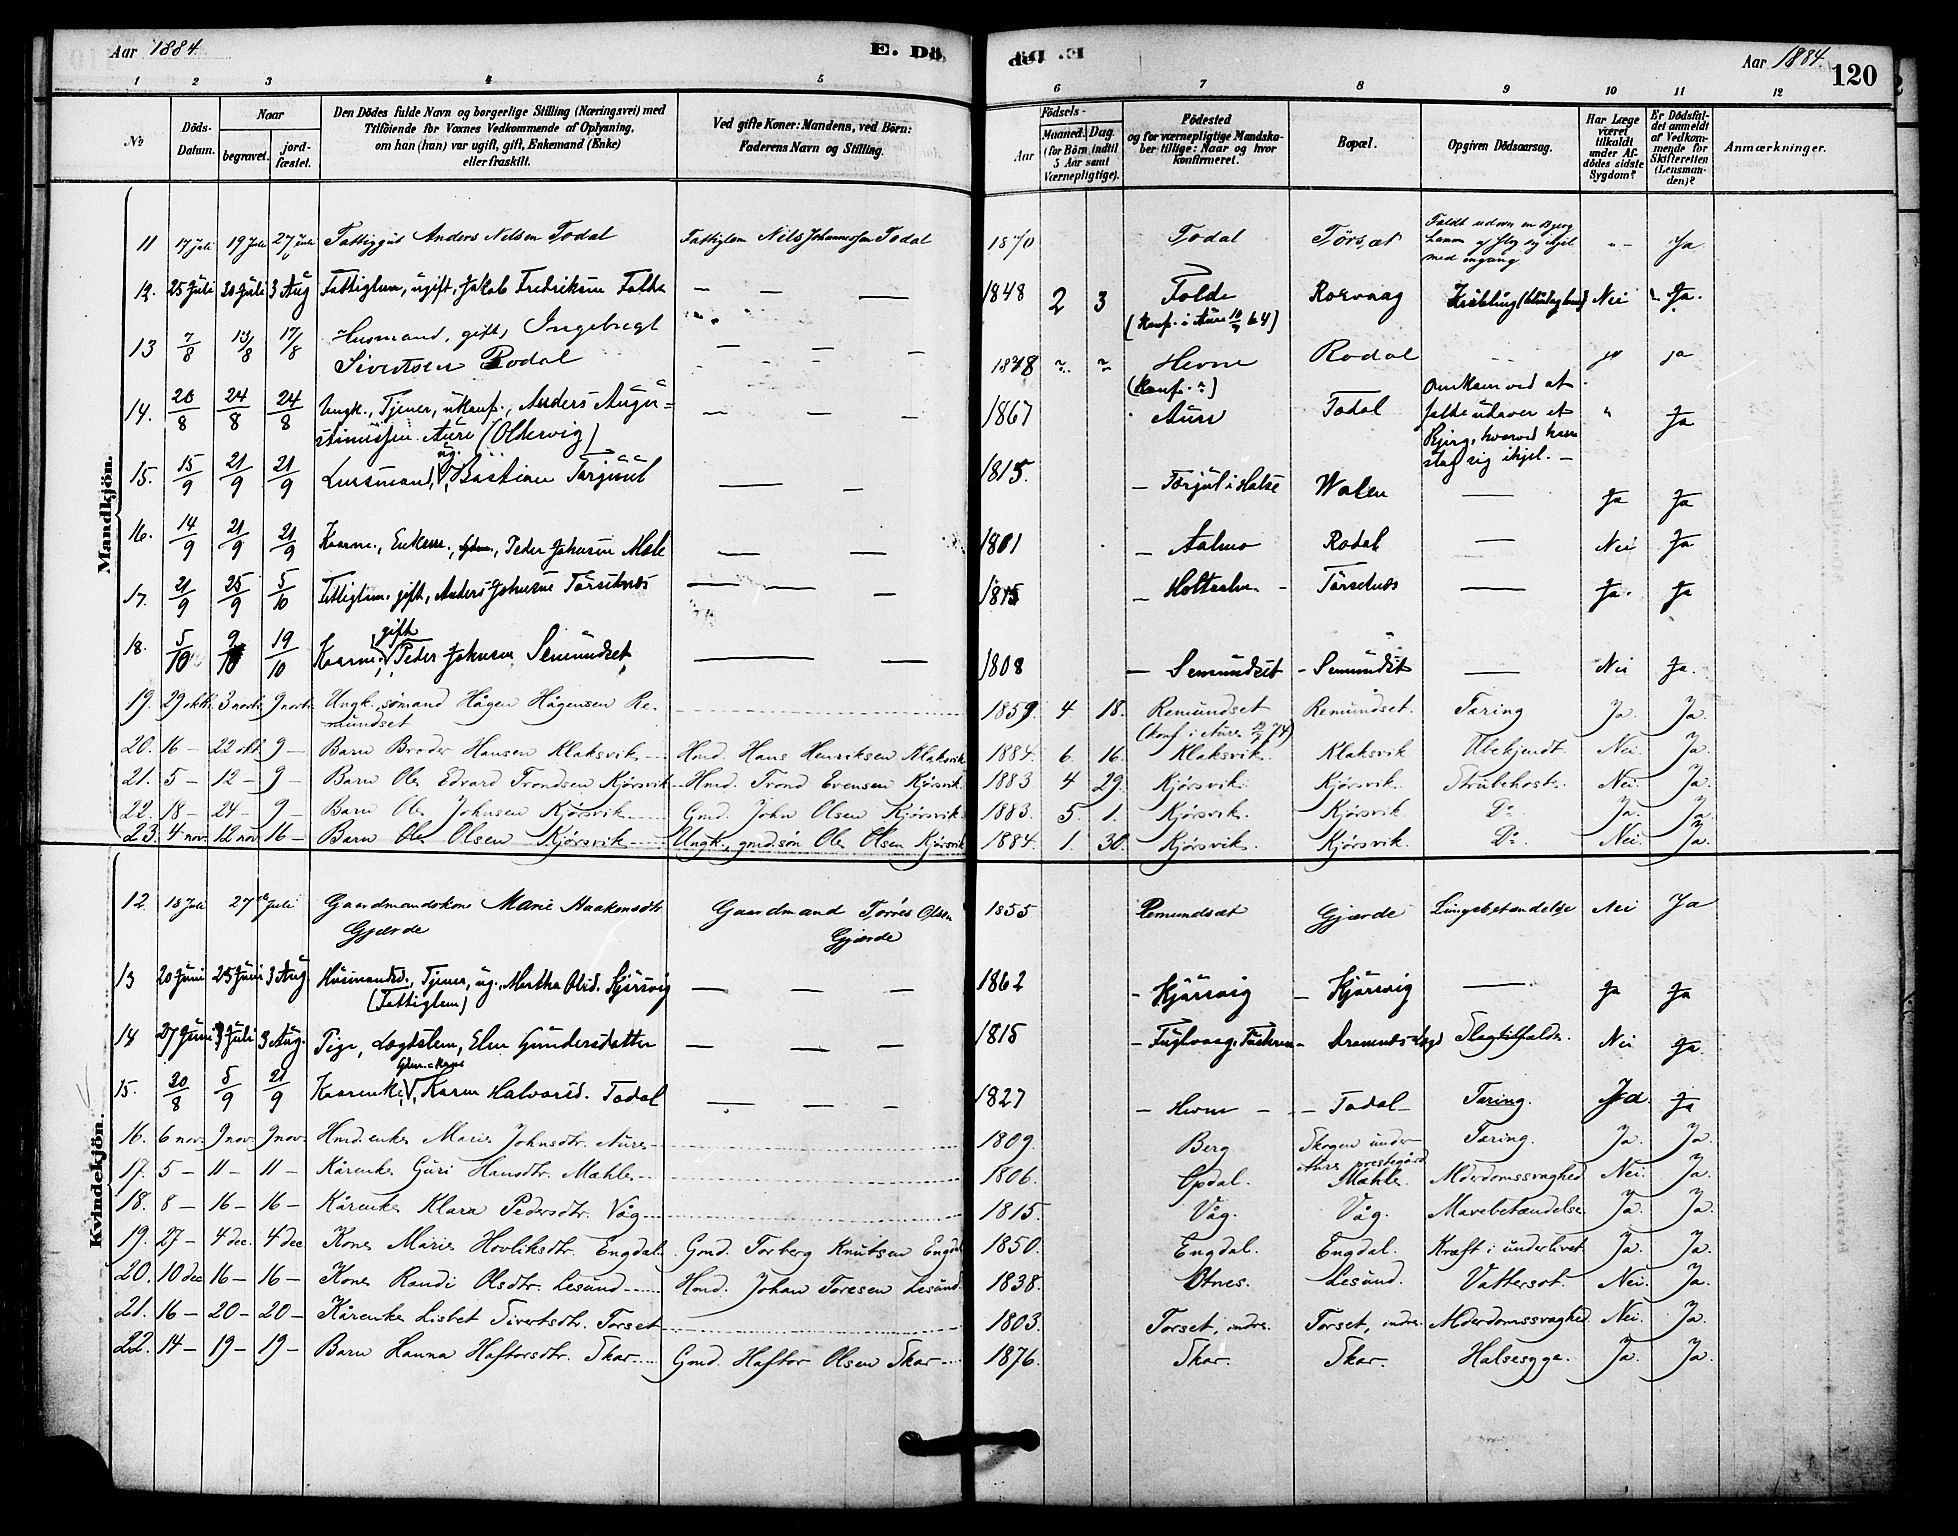 Aar 1884. E. Dö
Dö E. Aar 1884. 120
1 2 3 4 5 6 7 8 9 10 11 12
No
Döds-Datum.
Naar
begravet. jordfæstet.
Den Dödes fulde Navn og borgerlige Stilling (Næringsvei) med
Tilföiende for Voxnes Vedkommende af Oplysning,
om han (hun) var ugift, gift, Enkemand (Enke)
eller fraskilt.
Ved gifte Koner: Mandens, ved Börn:
Faderens Navn og Stilling.
Födsels-
Aar Maaned. Dag.
(for Börn indtil
5 Aar samt
Værnepligtige).
Födested
og for værnepligtige Mandska-
ber tillige: Naar og hvor
konfirmeret.
Bopæl.
Opgiven Dödsaarsag.
Har Læge
været
tilkaldt
under Af-
dödes sidste
Sygdom?
Er Dödsfal-
det anmeldt
af Vedkom-
mende for
Skifteretten
(Lensman-
den)?
Anmærkninger.
Mandkjön.
11 17 Juli 19 Juli 27 Juli Fattiggut Anders Nilsen Todal Fattiglem Nils Johannessen Todal 1870 Todal Törsæt Faldt udover en Bjerg
og slog sig ihjel
med engang. Ja
12. 25 Juli 30 Juli 3 Aug Fattiglem, ugift, Jakob Fredriksen Folde — — — 1848 2 3 Folde Rosvaag Nei Ja.
(Konf. i Aure 64)
13 7/8 13/8 17/8 Husmand, gift, Ingebregt
Sivertsen Rodal — — — Hevne Rodal ja
(Konf. )
14. 20/8 24/8 24/8 Ungk., Tjener, ukonf., Anders Augu-
stinussen Aure (Oldervig) — — — 1867 Aure Todal Omkom ved at
falde udover et
Bjerg, hvorved han
slog sig ihjel. — Ja
15. 15/9 21/9 21/9 ug. Bastian Torjul — — 1815. — Torjul i Halse Waten — Ja Ja
16. 14/9 21/9 21/9 Kaarm., Enkem., Peder Johnsen Mæle — — 1801 — Aalmo Rodal — Nei Ja
17. 21/9 25/9 5/10 Fattiglem. gift, Anders Johnsen Torsetnes — — — 1815 — Torsetnes — Ja. Ja
18. 5/10 9/10 19/10 Kaarm., gift Peder Johnsen Semundset — — 1808 — Semundset — Semundset — Nei Ja.
19. 29 okt. 3 novbr. 9 novbr. Ungk. sømand Hågen Hågensen Re-
mundset 1859. 4 18. Remundset Remundset. Tæring Ja. Ja.
(konf. i Aure 74)
20. 16 — 22 okt. 9 — Barn Broder Hansen Klaksvik Hmd. Hans Henriksen Klaksvik 1884. 6. 16. Klaksvik. Klaksvik Ubekjendt. Nei. Ja.
21. 5 — 12 — 9 — Barn Ole Edvard Trondsen Kjørsvik Hmd. Trond Evensen Kjørsvik 1883 4 29. Kjørsvik. Kjørsvik. Strubehoste. Nei. Ja.
22. 18 — 24 — 9 — Barn Ole Johnsen Kjørsvik Gmd. John Olsen Kjørsvik 1883. 5. 1. Kjørsvik. Kjørsvik. Do Ja. Ja.
23. 4 nov. 12 nov. 16 — Barn Ole Olsen Kjørsvik Ungk., gmd.søn Ole Olsen Kjørsvik 1884. 1. 30. Kjørsvik. Kjørsvik. Do Nei. Ja.
Kvindekjön.
12. 18 Juli 27 Juli Gaardmandskone Marie Haakensdtr
Gjærde Gaardmand Tørres Olsen
Gjærde 1855 Remundsæt Gjærde Lungebetændelse Nei Ja
13 20 Juni 25 Juni 3 Aug. Husmandsd., Tjener, ug., Martha Olsd. Kjörsvig
(Fattiglem) — — — 1862 — Kjörsvig — Kjörsvig — Ja Ja
14 27 Juni 3 Juli 3 Aug. Pige, Lægdslem, Elen Gundersdatter — — — 1815 — Fuglvaag, Tustern — Slagtilfælde. Nei Ja.
15. 30/8 5/9 21/9 Kaarenke, Karen Halvorsd. Todal — — — 1827 — Hevne — — Todal — Tæring. Ja. Ja
16. 6 nov. 9 nov. 9 nov. Hmd.enke Marie Johnsdtr. Aure 1809. Berg Skogen under
Aure prestegård Tæring. Ja. Ja.
17. 5 — 11 — 11 — Kårenke Guri Hansdtr. Mæhle 1806. Opdal. Mæhle. Alderdomssvaghed Nei. Ja.
18. 8 — 16 — 16 — Kårenke Klara Pedersdtr. Våg 1815. Våg. Våg. Mavebetændelse Ja. Ja.
19. 27 — 4 dec. 4 dec. Kone Marie Hovliksdtr. Engdal. Gmd. Torberg Knutsen Engdal 1850. Engdal. Engdal. Kræft i underlivet Ja. Ja.
20. 10 dec 16 — 16 — Kone Randi Olsdtr. Lesund Hmd. Johan Toresen Lesund. 1838. Otnes. Lesund. Vattersot. Nei. Ja.
21. 16 — 20 — 20 — Kårenke Lisbet Sivertsdtr. Torset 1803. Torset, indre. Torset, indre. Alderdomssvaghed. Nei. Ja.
22. 14 — 19 — 19 — Barn Hanna Haftorsdtr. Skar Gmd. Haftor Olsen Skar 1876. Skar. Skar. Halsesyge. Ja. Ja.